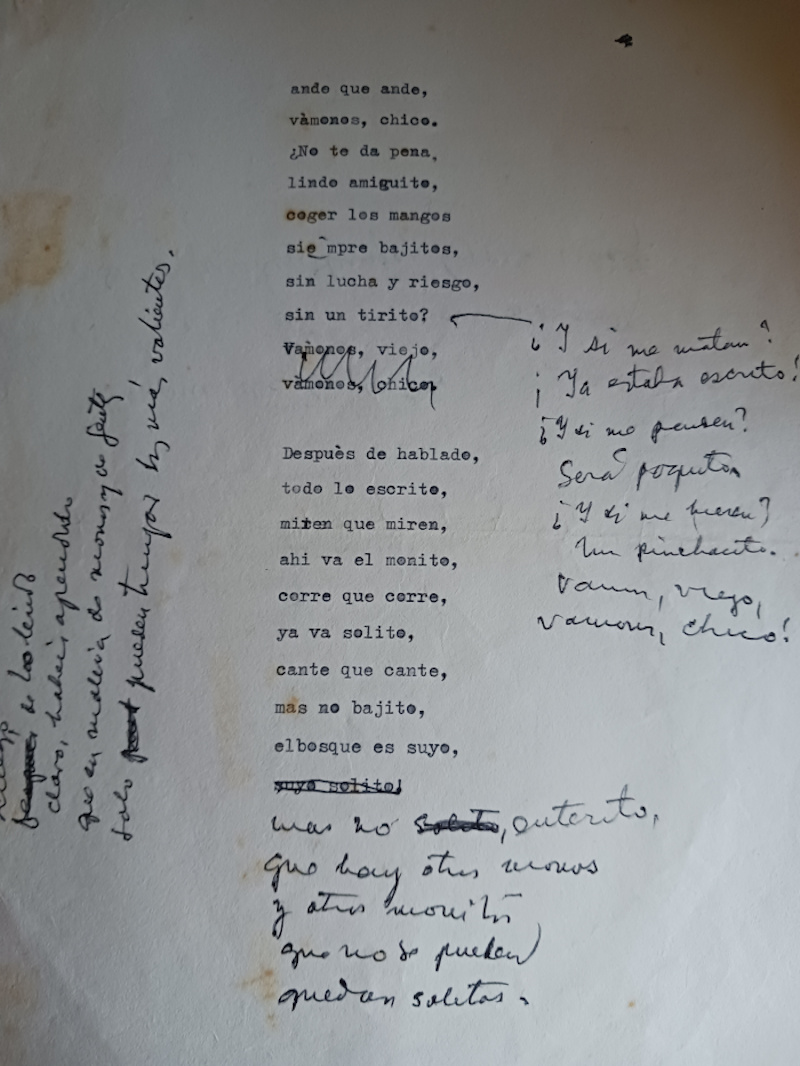 ande que ande,
vàmonos, chico.
¿No te da pena,
lindo amiguito,
coger los mangos
siempre bajitos,
sin lucha y riesgo,
sin un tirito?
Vàmonos, viejo,
vàmonos, chico,
¿Y si me matan?
¡Ya estaba escrito!
¿Y si me
Será poquito
¿Y si me hieren?
Un pinchacito.
Vamos, viejo,
vamonos, chico!
Despuès de hablado,
todo lo escrito,
miren que miren,
ahi va el monito,
corre que corre,
ya va solito,
cante que cante,
mas no bajito,
elbosque es suyo,
suyo solito!
mas no solito, enterito,
que hay otros monos
y otros monitos
que no se pueden
quedar solitos.
de leido
claro, habeis aprendido
que en materia de monos y de gente
solo pueden triunfar los más valientes.